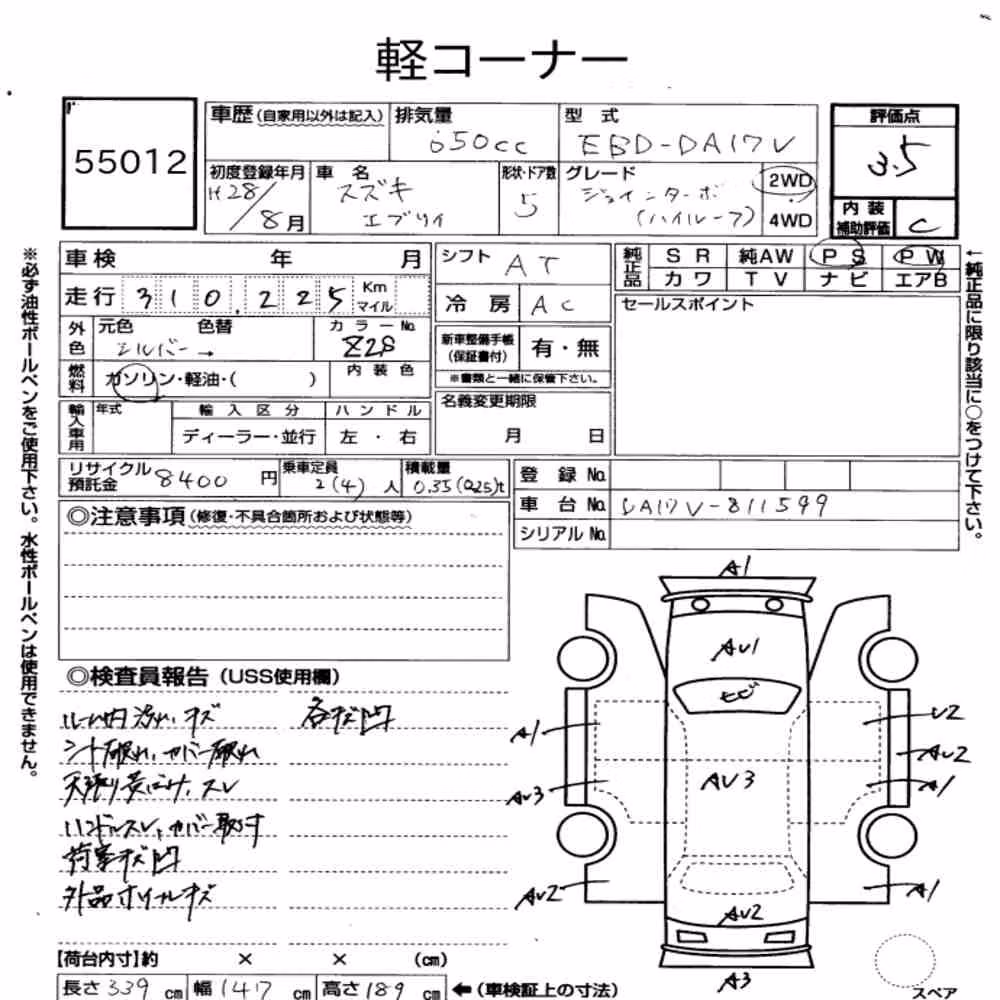 軽コーナー
55012
車歴(自家用以外は記入)
排気量
650cc
型式
EBD-DA17V
評価点
3.5
初度登録年月
H28/8月
車名
スズキ
エブリイ
形状・ドア数
5
グレード
ジョインターボ
(ハイルーフ)
2WD
4WD
内装
補助評価
C
※必ず油性ボールペンをご使用下さい。水性ボールペンは使用できません。
←純正品に限り該当に○をつけて下さい。
車検 年 月
走行 310,225 Km
マイル
シフト
AT
冷房
AC
純正品
SR 純AW PS PW
カワ TV ナビ エアB
セールスポイント
外色
元色 色替
シルバー →
カラーNo.
Z2S
燃料
ガソリン・軽油・( )
内装色
新車整備手帳
(保証書付)
有・無
※書類と一緒に保管下さい。
輸入車用
年式
輸入区分
ハンドル
ディーラー・並行
左・右
名義変更期限
月 日
リサイクル
預託金
8400 円
乗車定員
2(4)人
積載量
0.35(0.25)t
登録No.
車台No.
DA17V-811599
シリアルNo.
◎注意事項(修復・不具合箇所および状態等)
◎検査員報告(USS使用欄)
ルーム内汚れ、キズ
各キズ凹
シート破れ、カバー破れ
天張り黄ばけ、スレ
ハンドルスレ、カバー取付
荷室キズ凹
外品ホイールキズ
A1
AU1
ヒビ
A1
U2
AU2
AU3
AU3
A1
AU2
A1
AU2
A3
【荷台内寸】約 × × (cm)
長さ 339 cm
幅 147 cm
高さ 189 cm
←(車検証上の寸法)
スペア